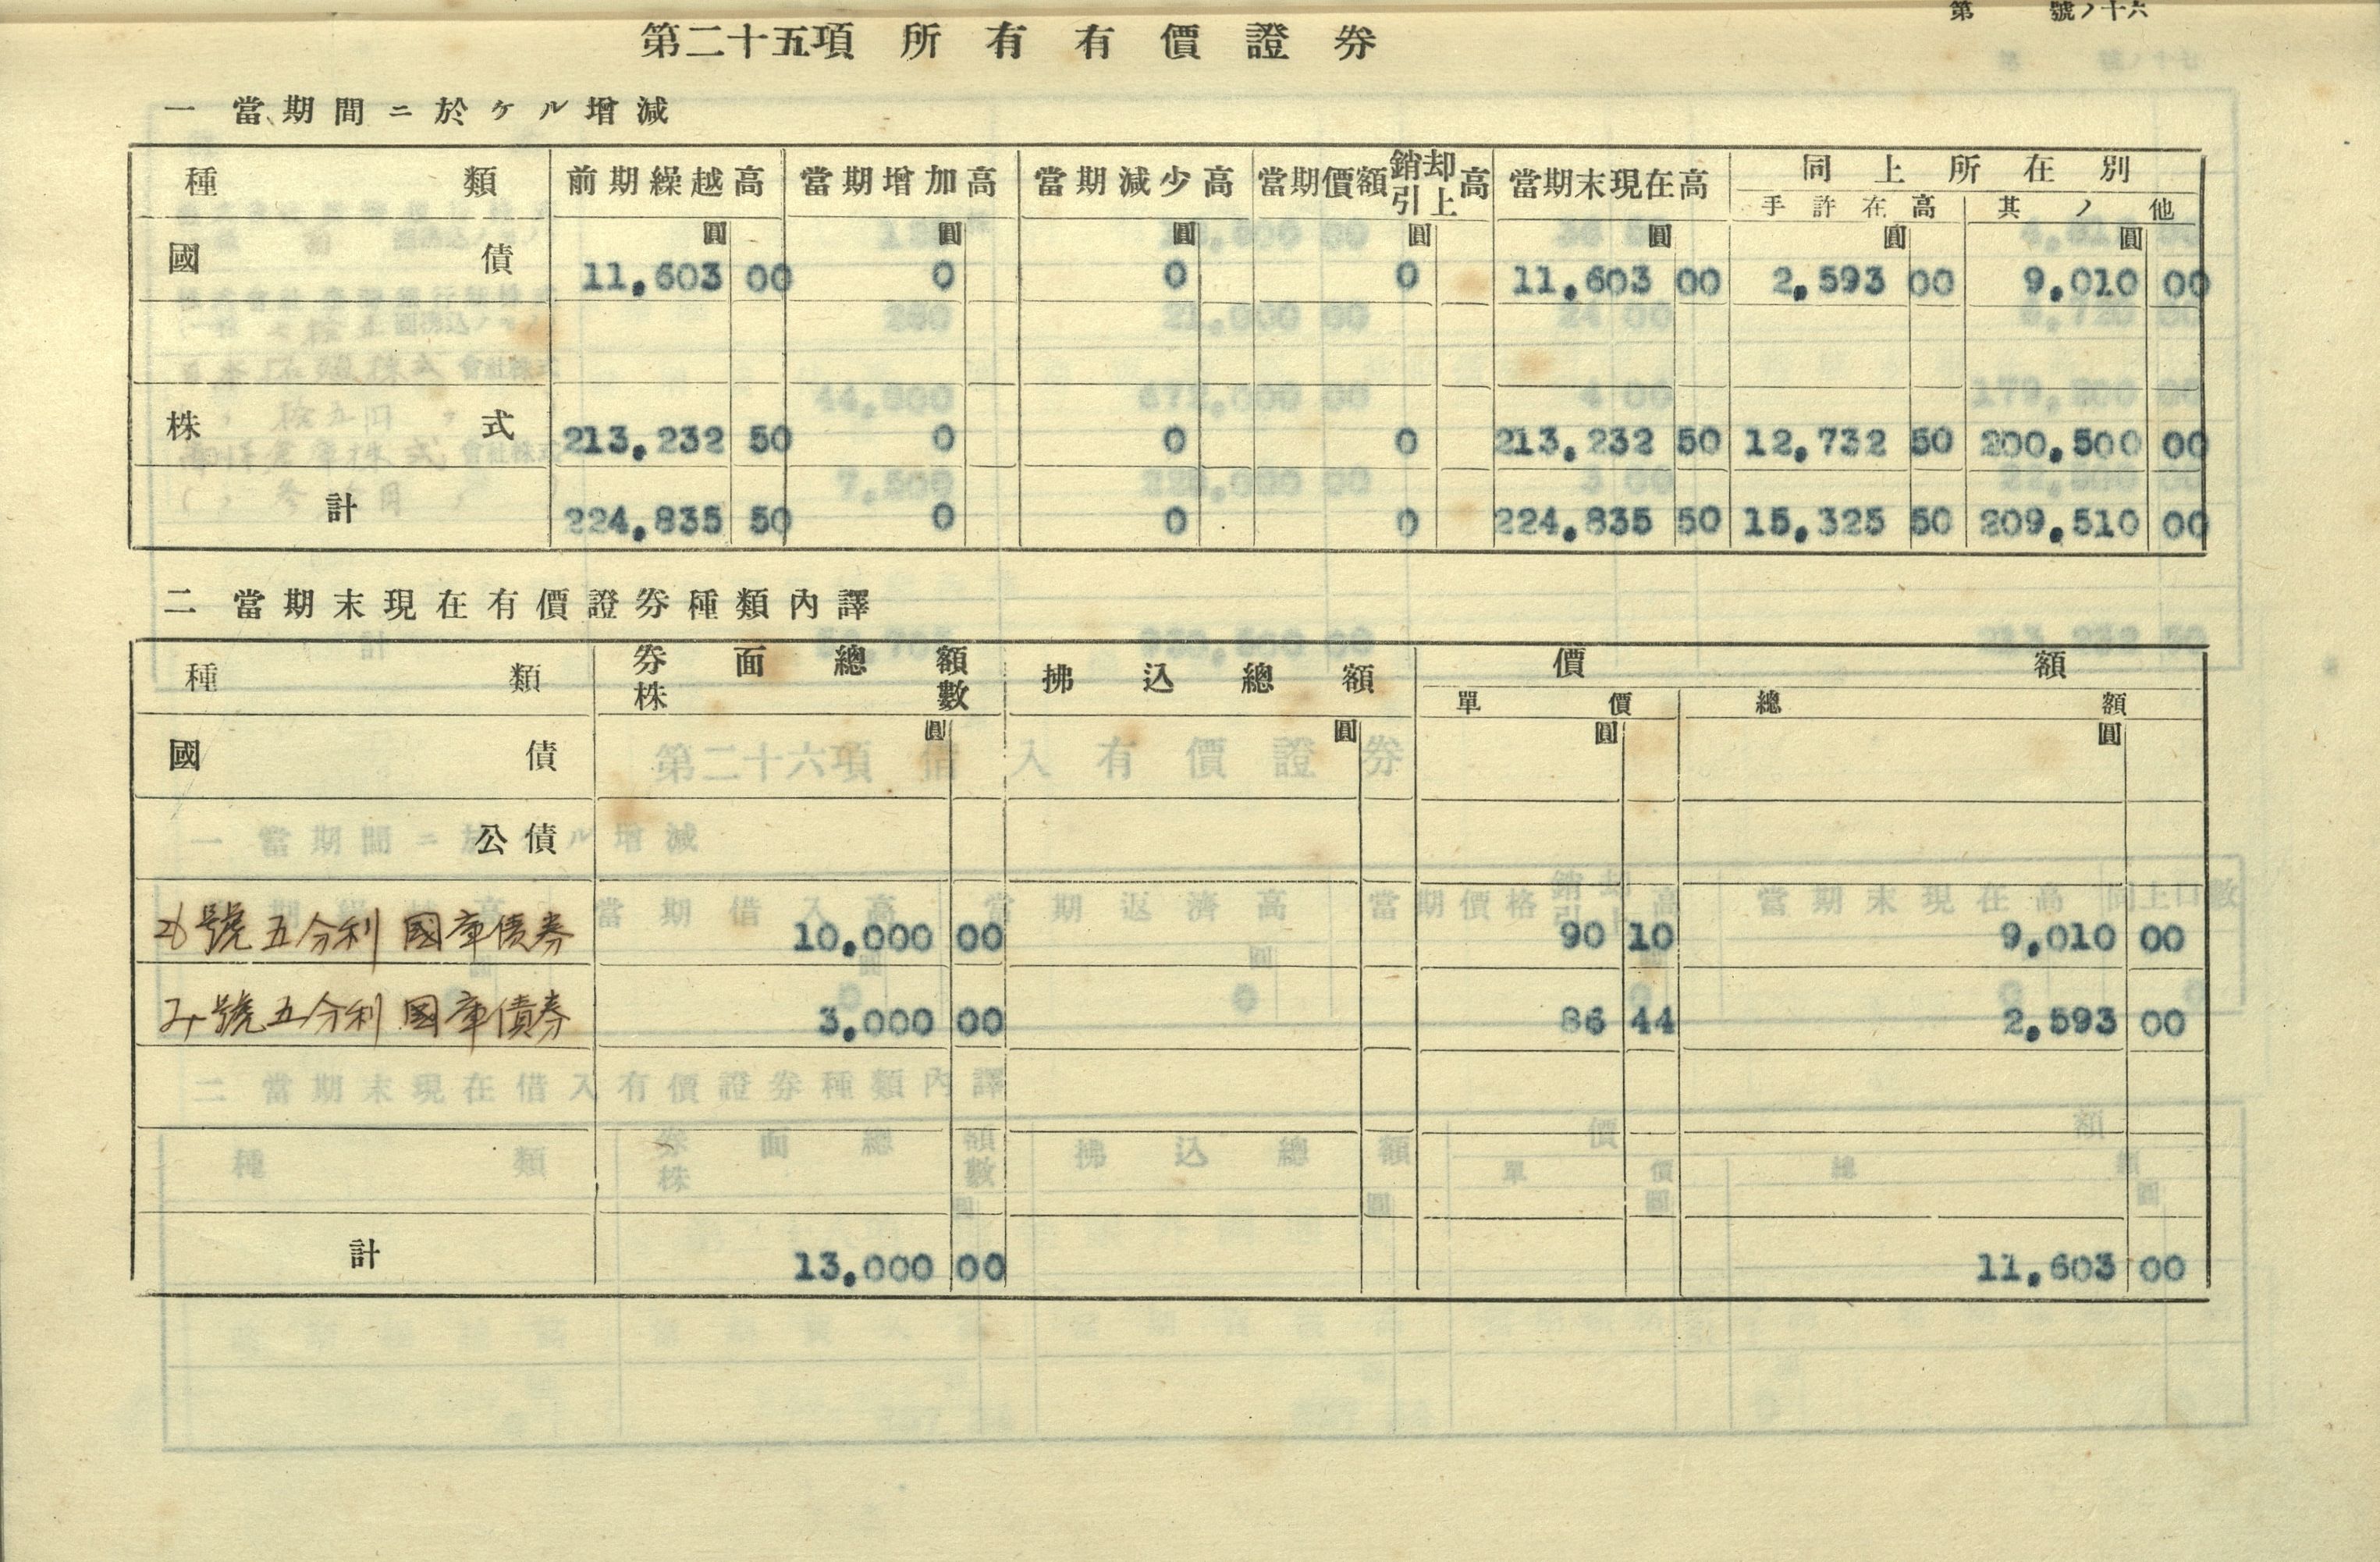 第 號ノ十六
第二十五項 所有有價證券
一 當期間ニ於ケル增減
種類 前期繰越高 當期增加高 當期減少高 當期價額銷却引上高 當期末現在高 同上所在別
手許在高 其ノ他
圓 圓 圓 圓 圓 圓 圓
國債 11,603 00 0 0 0 11,603 00 2,593 00 9,010 00
株式 213,232 50 0 0 0 213,232 50 12,732 50 200,500 00
計 224,835 50 0 0 0 224,835 50 15,325 50 209,510 00
二 當期末現在有價證券種類內譯
種類 券面總額 株數 拂込總額 價額
單價 總額
圓 圓 圓 圓
國債
公債
號五分利國庫債券 10,000 00 90 10 9,010 00
み號五分利國庫債券 3,000 00 86 44 2,593 00
計 13,000 00 11,603 00